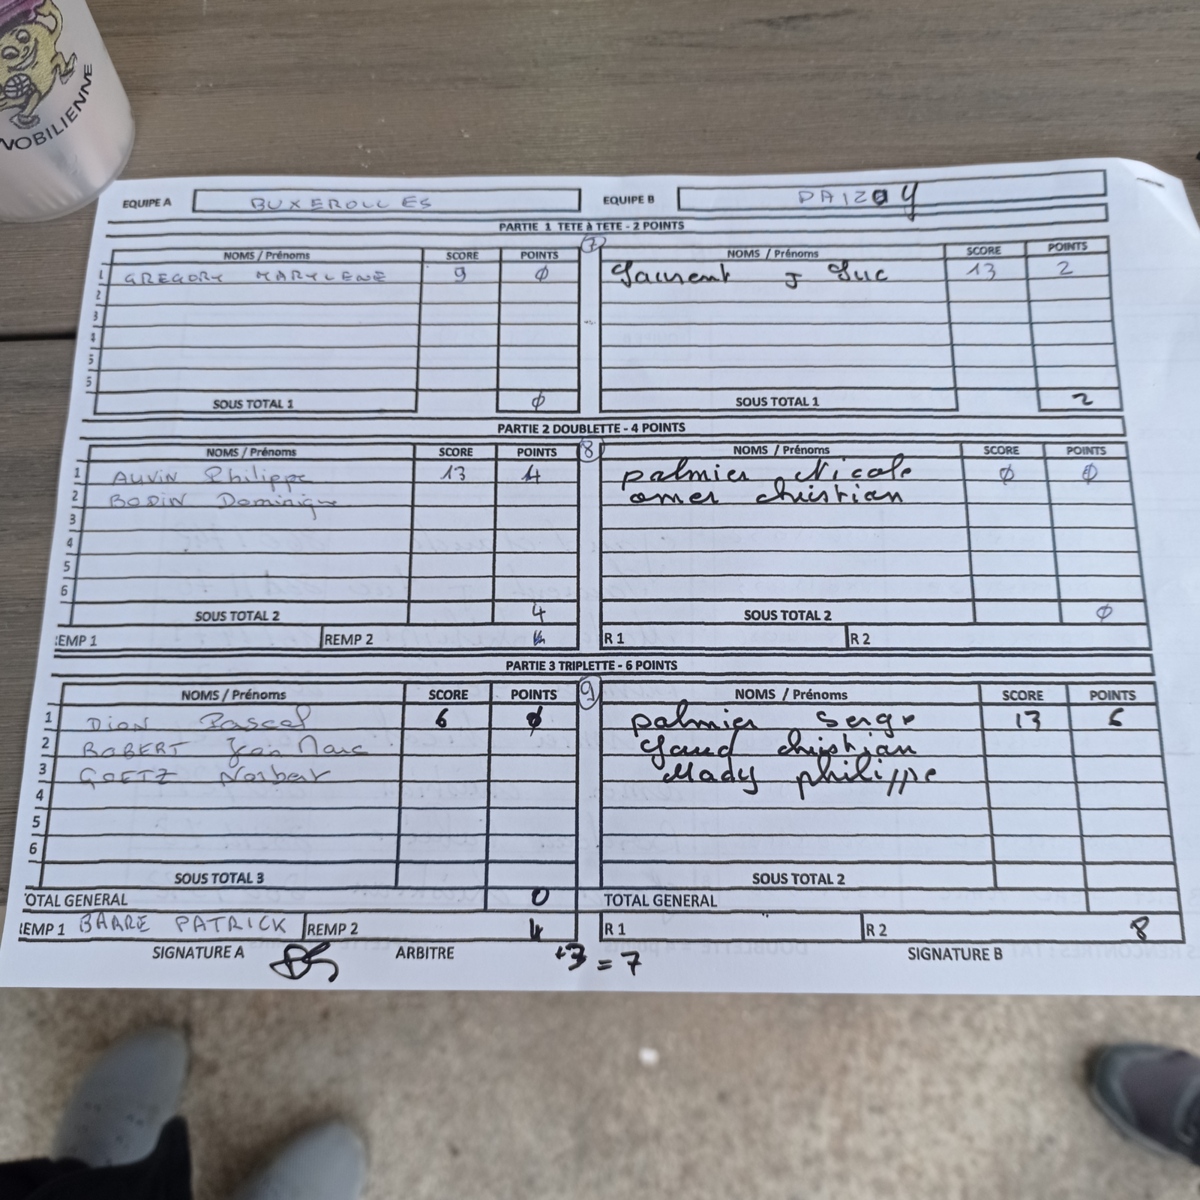 NOBILIENNE
EQUIPE A BUXEROLLES EQUIPE B DAIZAY
PARTIE 1 TETE à TETE - 2 POINTS
NOMS / Prénoms SCORE POINTS 7 NOMS / Prénoms SCORE POINTS
1 GREGORY MARYLENE 9 0 Laurent J Luc 13 2
2
3
4
5
5
SOUS TOTAL 1 0 SOUS TOTAL 1 2
PARTIE 2 DOUBLETTE - 4 POINTS
NOMS / Prénoms SCORE POINTS 8 NOMS / Prénoms SCORE POINTS
1 AUVIN Philippe 13 4 palmier Nicole 0 0
2 BODIN Dominique omer christian
3
4
5
6
SOUS TOTAL 2 4 SOUS TOTAL 2 0
EMP 1 REMP 2 4 R 1 R 2
PARTIE 3 TRIPLETTE - 6 POINTS
NOMS / Prénoms SCORE POINTS 9 NOMS / Prénoms SCORE POINTS
1 DION Pascal 6 0 palmier serge 13 6
2 ROBERT Jean Marc Gaud christian
3 GOETZ Norbert Mady philippe
4
5
6
SOUS TOTAL 3 SOUS TOTAL 2
OTAL GENERAL 0 TOTAL GENERAL
EMP 1 BARRE PATRICK REMP 2 4 R 1 R 2 8
SIGNATURE A ARBITRE +3 = 7 SIGNATURE B